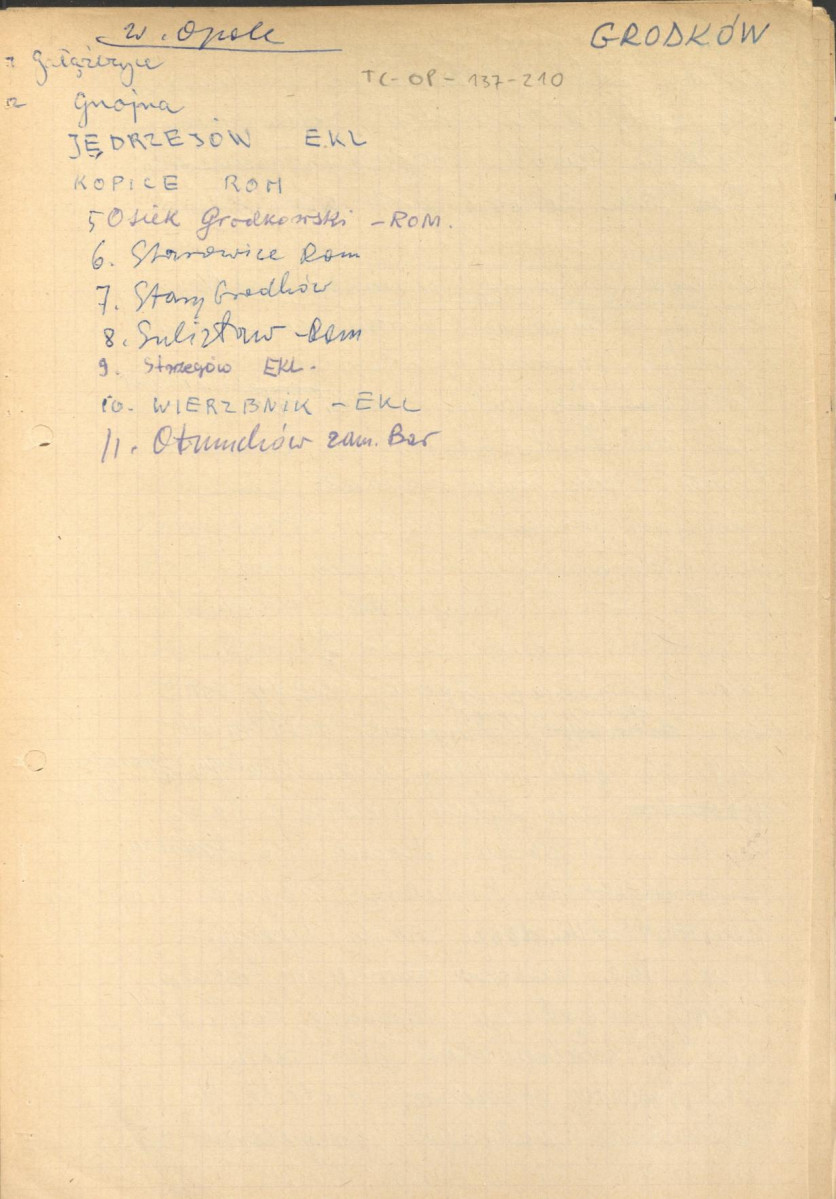 w. Opole
GRODKÓW
1 Gałążczyce
TC-OP-137-210
2 Gnojna
JĘDRZEJÓW EKL
KOPICE ROM
5 Osiek Grodkowski - ROM.
6. Starowice Rom
7. Stary Grodków
8. Sulisław - Rom
9. Strzegów EKL.
10. WIERZBNIK - EKL
11. Otmuchów zam. Bar